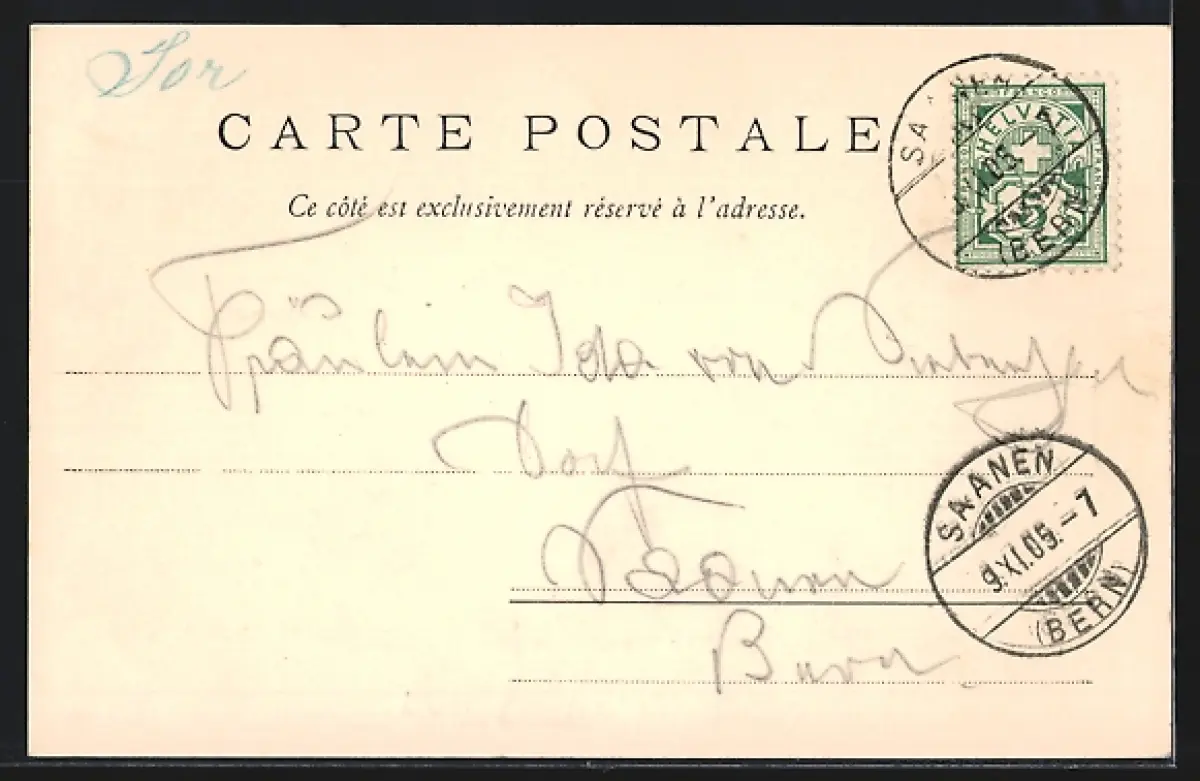 Sor
CARTE POSTALE
Ce côté est exclusivement réservé à l'adresse.
FRANCO
HELVETIA
5
SAANEN
XI.05
(BERN)
Fräulein Ida von
Dorf
Saanen
Bern
SAANEN
9.XI.05.-7
(BERN)